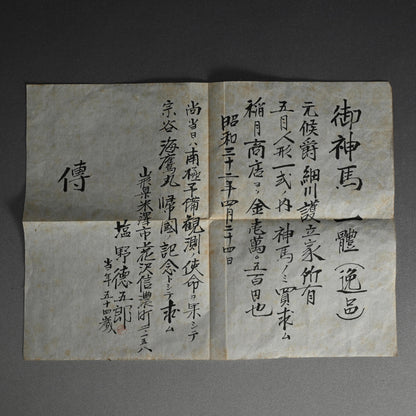 御神馬一體(逸品)
元候爵細川護立家所有
五月人形一式ノ内神馬ノミ買求ム
稲月商店ヨリ金壱萬〇五百円也
昭和三十二年四月二十四日
尚当日ハ南極予備観測ノ使命ヲ果シテ
宗谷海鷹丸帰國記念トシテ求ム
山形県米澤市花沢信濃町
塩野徳五郎
当年五十四歳
傳